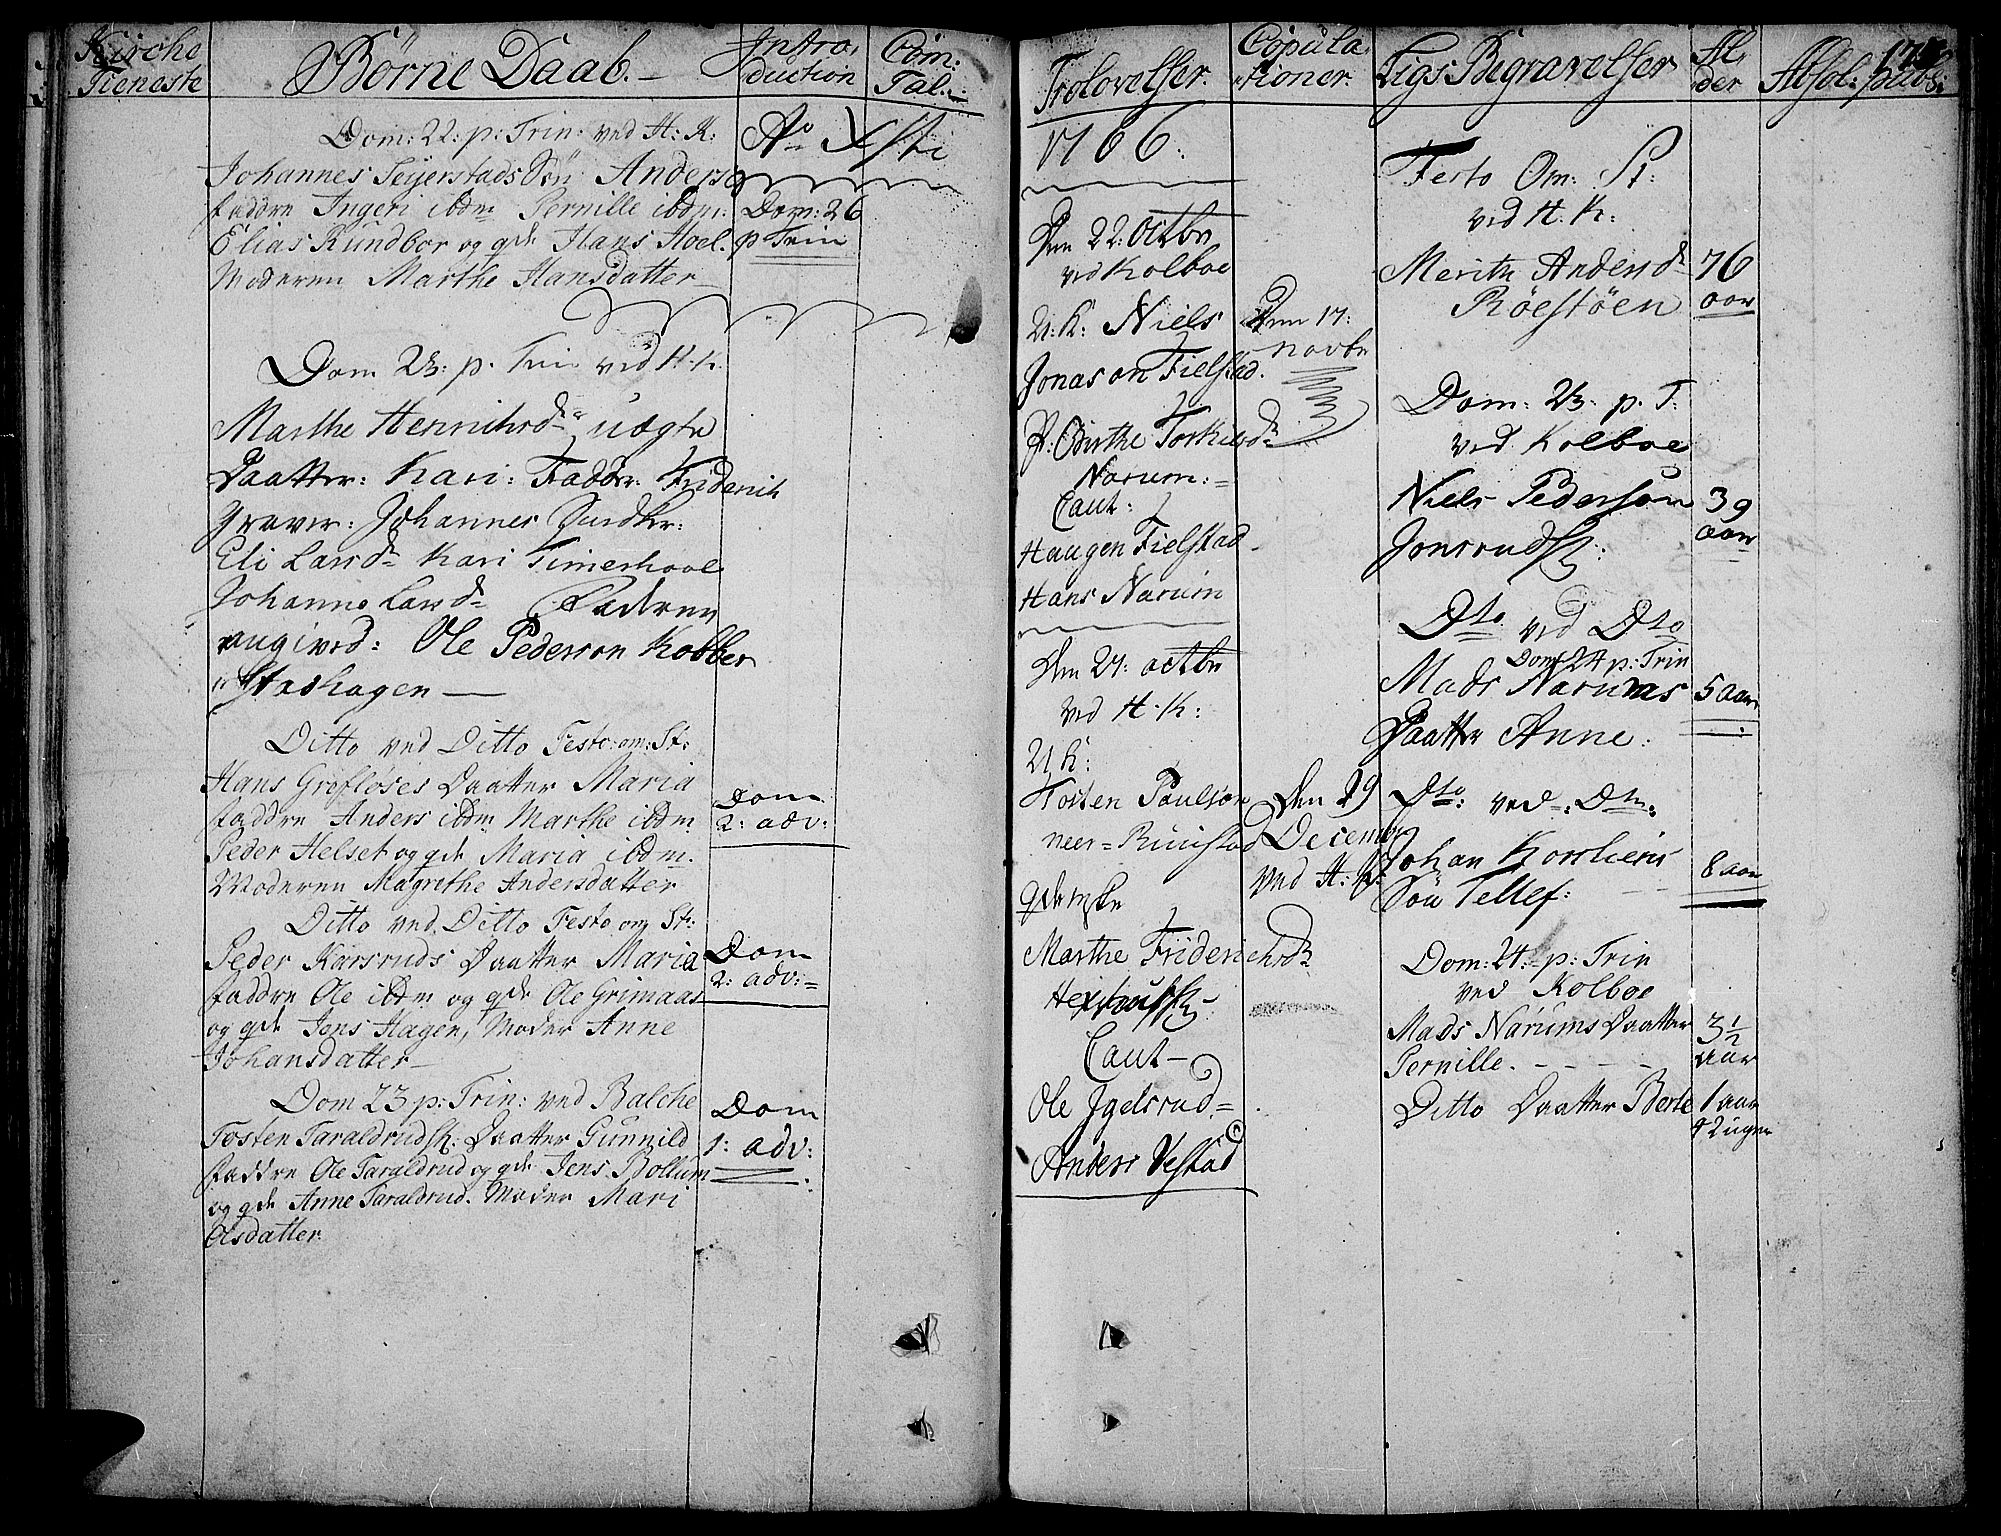 Kirche
Tieneste
Børne Daab.
Intro,
duction
Com:
Tal.
Dom: 22: p: Trin: ved H: K:
Johannes Seyerstads Søn Anders
faddre Ingeri ibdm Pernille ibdm:
Elias Rundbor og gde Hans Hoel.
Moderen Marthe Hansdatter
Ao Xsti
Dom: 26
p Trin
Dom 23: p. Trin ved H. K.
Marthe Henrichsdr uægte
Daatter: Kari: Faddr: Friderich
Graver: Johannes
Eli Larsdr Kari Timerhool
Johanne Larsdr Faderen
angived: Ole Pederson Kobber
Ditto ved Ditto Festo: om: St:
Hans Grefløses Daatter Maria
faddre Anders ibdm Marthe ibdm.
Peder Helset og gde Maria ibdm.
Moderen Magrethe Andersdatter
Dom
2: adv:
Ditto ved Ditto Festo om St:
Peder Karsruds Daatter Maria
faddre Ole ibdm og gde Ole Grimaas
og gde Jens Hagen, Moder Anne
Johansdatter
Dom
2: adv:
Dom 23 p: Trin: ved Balche
Tosten Taraldrud Daatter Gunnild
faddre Ole Taraldrud og gde Jens Bollum
og gde Anne Taraldrud. Moder Mari
Olsdatter
Dom
1: adv:
Trolovelser.
Copula,
tioner.
Ligs Begravelser
Al,
der
Absol: publ:
1766.
Den 22: Octbr
ved Kolboe
U: K: Niels
Jonason Fielstad.
P. Birthe Torkilsdr
Narum:
Caut:
Haugen Fielstad
Hans Narum
Den 17:
Novbr
Den 27: octbr
ved H. K:
U K:
Tosten Paulson
neer Runstad
Marthe Friderichsdr
Caut
Ole Igelsrud
Anders Vestad
Den 29
Decembr
ved H: K:
Festo Om: St:
ved H. K:
Merith Andersdr
Røestøen
76
aar
Dom: 23. p. T:
ved Kolboe
Niels Pederson
39
aar
Dto ved Dto
Dom 24 p: Trin
Mads Narums
Daatter Anne:
5 aar
Dto: ved: Dto.
Johan Korsliens
Søn Tellef:
8 aar
Dom: 24: p: Trin
ved Kolboe
Mads Narums Daatter
Pernille
3 1/2
aar
Ditto Daatter Berte
1 aar